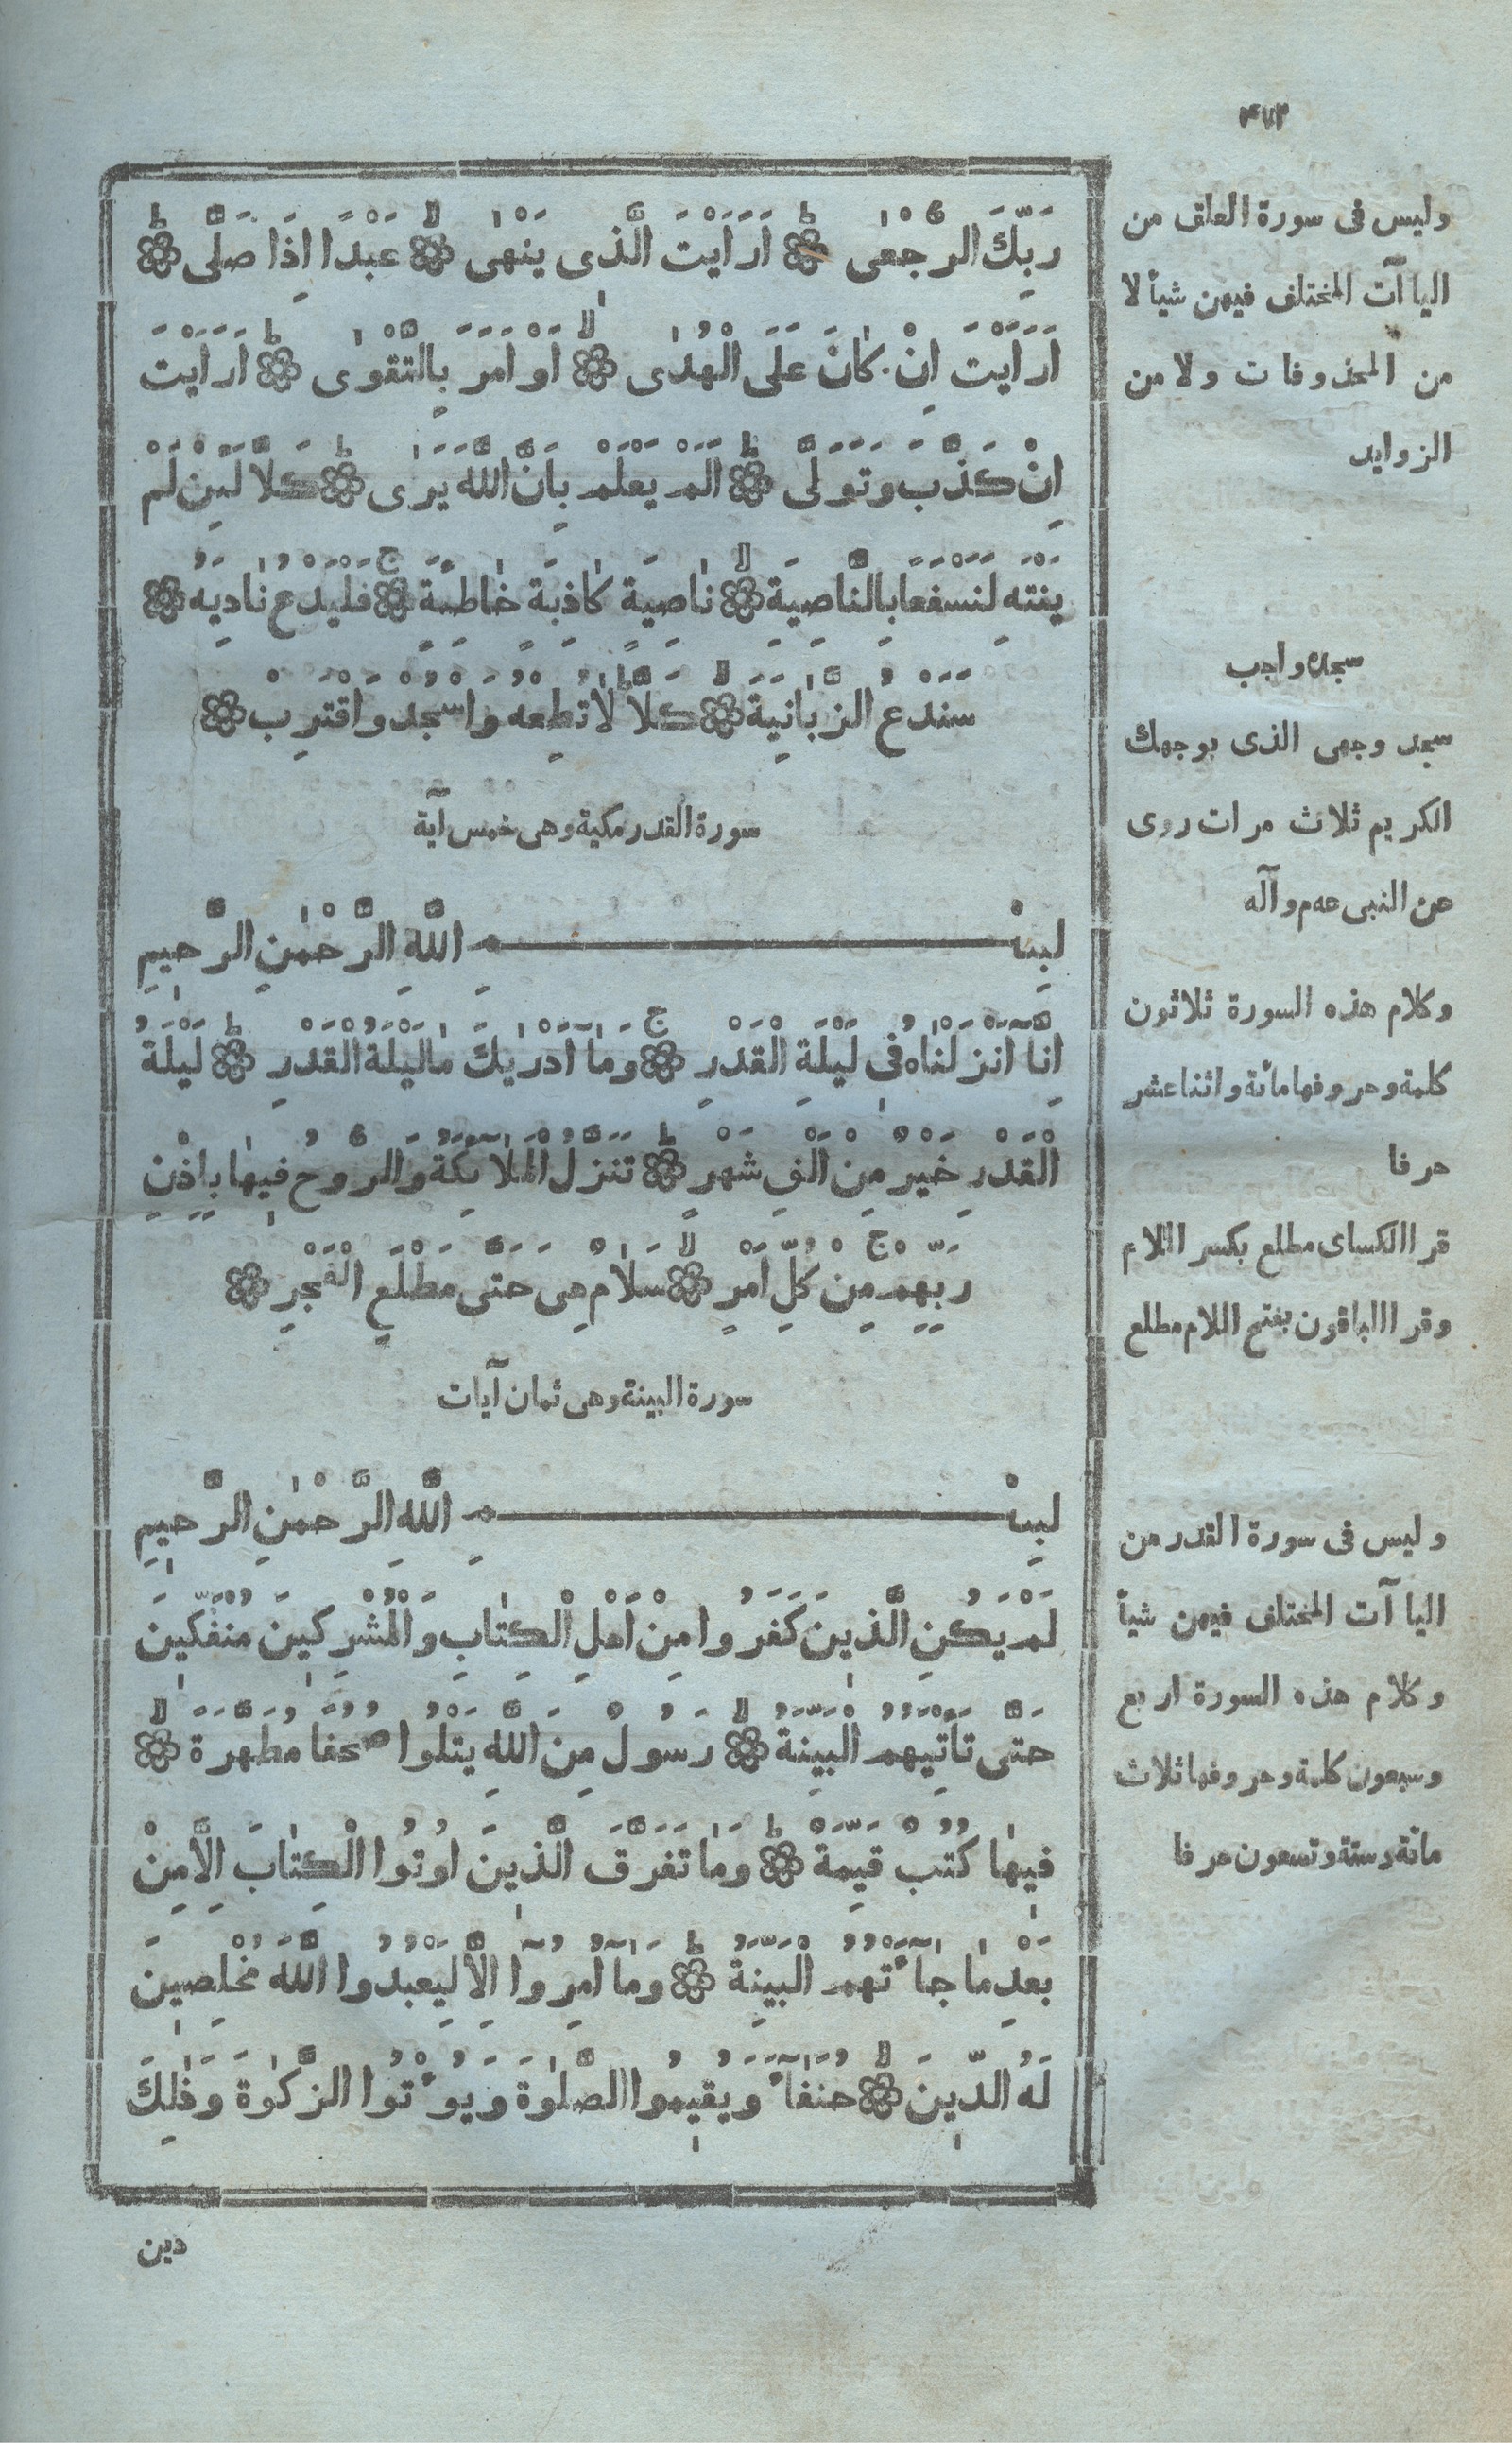 ۴۷۳
رَبِّكَ الرُّجْعٰى ۞ اَرَاَيْتَ الَّذٖى يَنْهٰى ۞ عَبْدًا اِذَا صَلّٰى ۞
اَرَاَيْتَ اِنْ كَانَ عَلَى الْهُدٰى ۞ اَوْ اَمَرَ بِالتَّقْوٰى ۞ اَرَاَيْتَ
اِنْ كَذَّبَ وَتَوَلّٰى ۞ اَلَمْ يَعْلَمْ بِاَنَّ اللّٰهَ يَرٰى ۞ كَلَّا لَئِنْ لَمْ
يَنْتَهِ لَنَسْفَعًا بِالنَّاصِيَةِ ۞ نَاصِيَةٍ كَاذِبَةٍ خَاطِئَةٍ ۞ فَلْيَدْعُ نَادِيَهُ ۞
سَنَدْعُ الزَّبَانِيَةَ ۞ كَلَّا لَاتُطِعْهُ وَاسْجُدْ وَاقْتَرِبْ ۞
سورة القدر مكية وهى خمس آية
بِسْمِ اللّٰهِ الرَّحْمٰنِ الرَّحٖيمِ
اِنَّا اَنْزَلْنَاهُ فٖى لَيْلَةِ الْقَدْرِ ۞ وَمَا اَدْرٰيكَ مَا لَيْلَةُ الْقَدْرِ ۞ لَيْلَةُ
الْقَدْرِ خَيْرٌ مِنْ اَلْفِ شَهْرٍ ۞ تَنَزَّلُ الْمَلَائِكَةُ وَالرُّوحُ فٖيهَا بِاِذْنِ
رَبِّهِمْ مِنْ كُلِّ اَمْرٍ ۞ سَلَامٌ هِىَ حَتّٰى مَطْلَعِ الْفَجْرِ ۞
سورة البينة وهى ثمان آيات
بِسْمِ اللّٰهِ الرَّحْمٰنِ الرَّحٖيمِ
لَمْ يَكُنِ الَّذٖينَ كَفَرُوا مِنْ اَهْلِ الْكِتَابِ وَالْمُشْرِكٖينَ مُنْفَكّٖينَ
حَتّٰى تَاْتِيَهُمُ الْبَيِّنَةُ ۞ رَسُولٌ مِنَ اللّٰهِ يَتْلُوا صُحُفًا مُطَهَّرَةً ۞
فٖيهَا كُتُبٌ قَيِّمَةٌ ۞ وَمَا تَفَرَّقَ الَّذٖينَ اُوتُوا الْكِتَابَ اِلَّا مِنْ
بَعْدِ مَا جَآءَتْهُمُ الْبَيِّنَةُ ۞ وَمَا اُمِرُوٓا اِلَّا لِيَعْبُدُوا اللّٰهَ مُخْلِصٖينَ
لَهُ الدّٖينَ ۞ حُنَفَآءَ وَيُقٖيمُوا الصَّلٰوةَ وَيُؤْتُوا الزَّكٰوةَ وَذٰلِكَ
دين
وليس فى سورة العلق من
اليا آت المختلف فيهن شيأ لا
من المحذوفات ولا من
الزوايد
سجده واجب
سجد وجهى الذى بوجهك
الكريم ثلاث مرات روى
عن النبى عم وآله
وكلام هذه السورة ثلاثون
كلمة وحروفها مائة واثنا عشر
حرفا
قرا الكساى مطلع بكسر اللام
وقرا الباقون بفتح اللام مطلع
وليس فى سورة القدر من
اليا آت المختلف فيهن شيأ
وكلام هذه السورة اربع
وسبعون كلمة وحروفها ثلاث
مائة وستة وتسعون حرفا